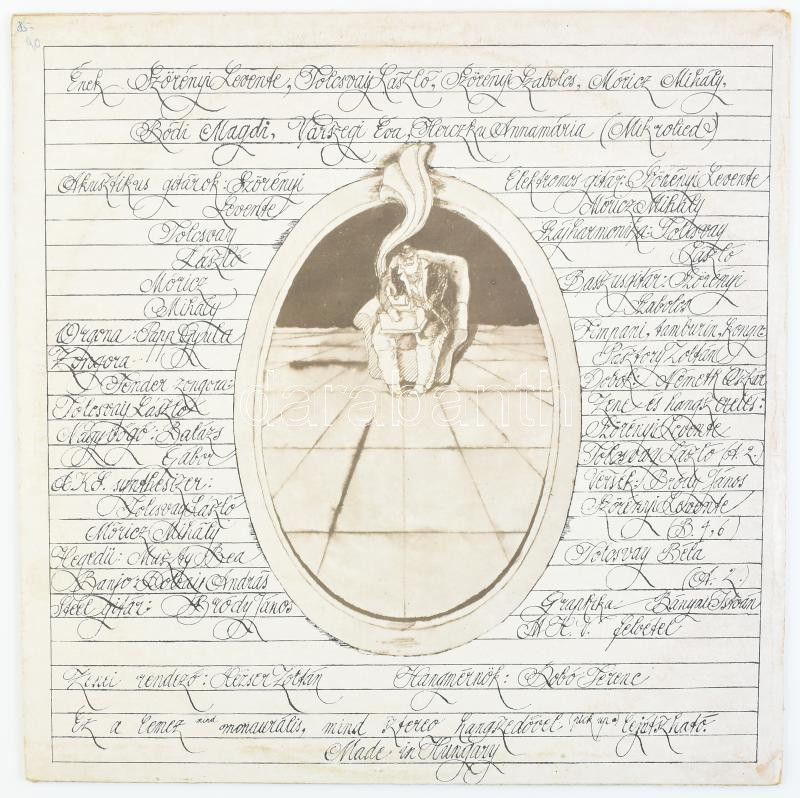 85-
90
Ének Szörényi Levente, Tolcsvay László, Szörényi Szabolcs, Móricz Mihály,
Bódi Magdi, Várszegi Éva, Herczku Annamária (Mikrolied)
Akusztikus gitárok: Szörényi
Levente
Tolcsvay
László
Móricz
Mihály
Orgona: Papp Gyula
Zongora - 11
Fender zongora:
Tolcsvay László
Nagybőgő: Balázs
Gábor
A.K.A. synthesizer:
Tolcsvay László
Móricz Mihály
Hegedű: Bea
Banjo: András
Steel gitár: Bródy János
Elektromos gitár: Szörényi Levente
Móricz Mihály
Szájharmonika: Tolcsvay
László
Basszusgitár: Szörényi
Szabolcs
Timpani, tamburin, konga:
Pásztory Zoltán
Dobok: Németh Oszkár
Zene és hangszerelés:
Szörényi Levente
Tolcsvay László (A. 2.)
Versek: Bródy János
Szörényi Levente
(B. 4, 6)
Tolcsvay Béla
(A. 2.)
Grafika Bányai István
M.H.V. felvétel
Zenei rendező: Hézser Zoltán Hangmérnök: Bobó Ferenc
Ez a lemez mind monaurális, mind sztereo hangszedővel (pick up) lejátszható.
Made in Hungary
darabanth